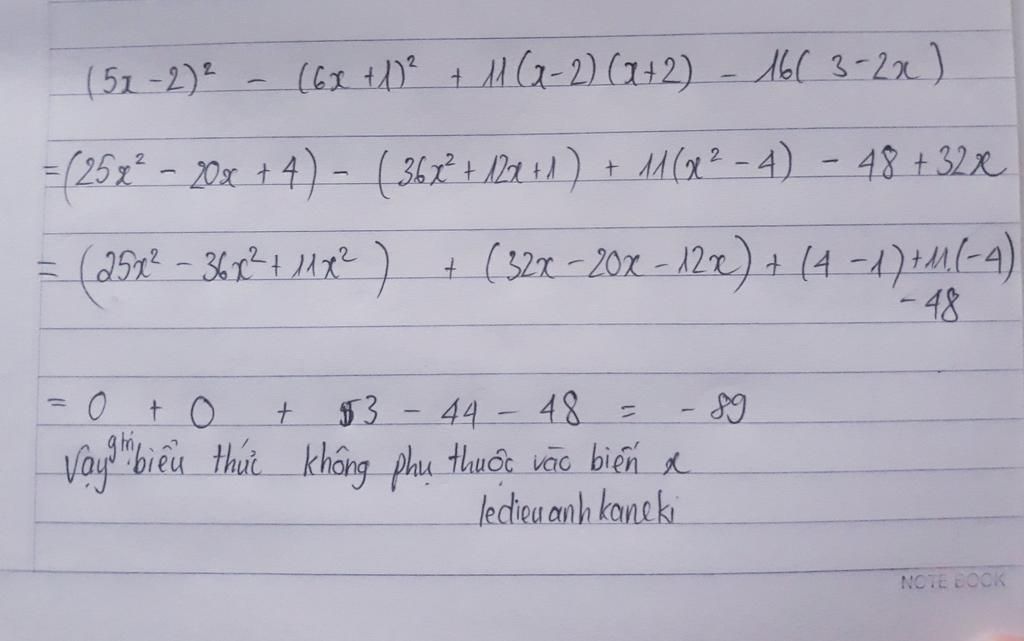 (5x - 2)² - (6x + 1)² + 11(x - 2)(x + 2) - 16( 3 - 2x )
= (25x² - 20x + 4) - (36x² + 12x + 1) + 11(x² - 4) - 48 + 32x
= (25x² - 36x² + 11x²) + (32x - 20x - 12x) + (4 - 1) + 11.(-4)
- 48
= 0 + 0 + 3 - 44 - 48 = - 89
Vậy gtrị biểu thức không phụ thuộc vào biến x
ledieuanhkaneki
NOTE BOOK